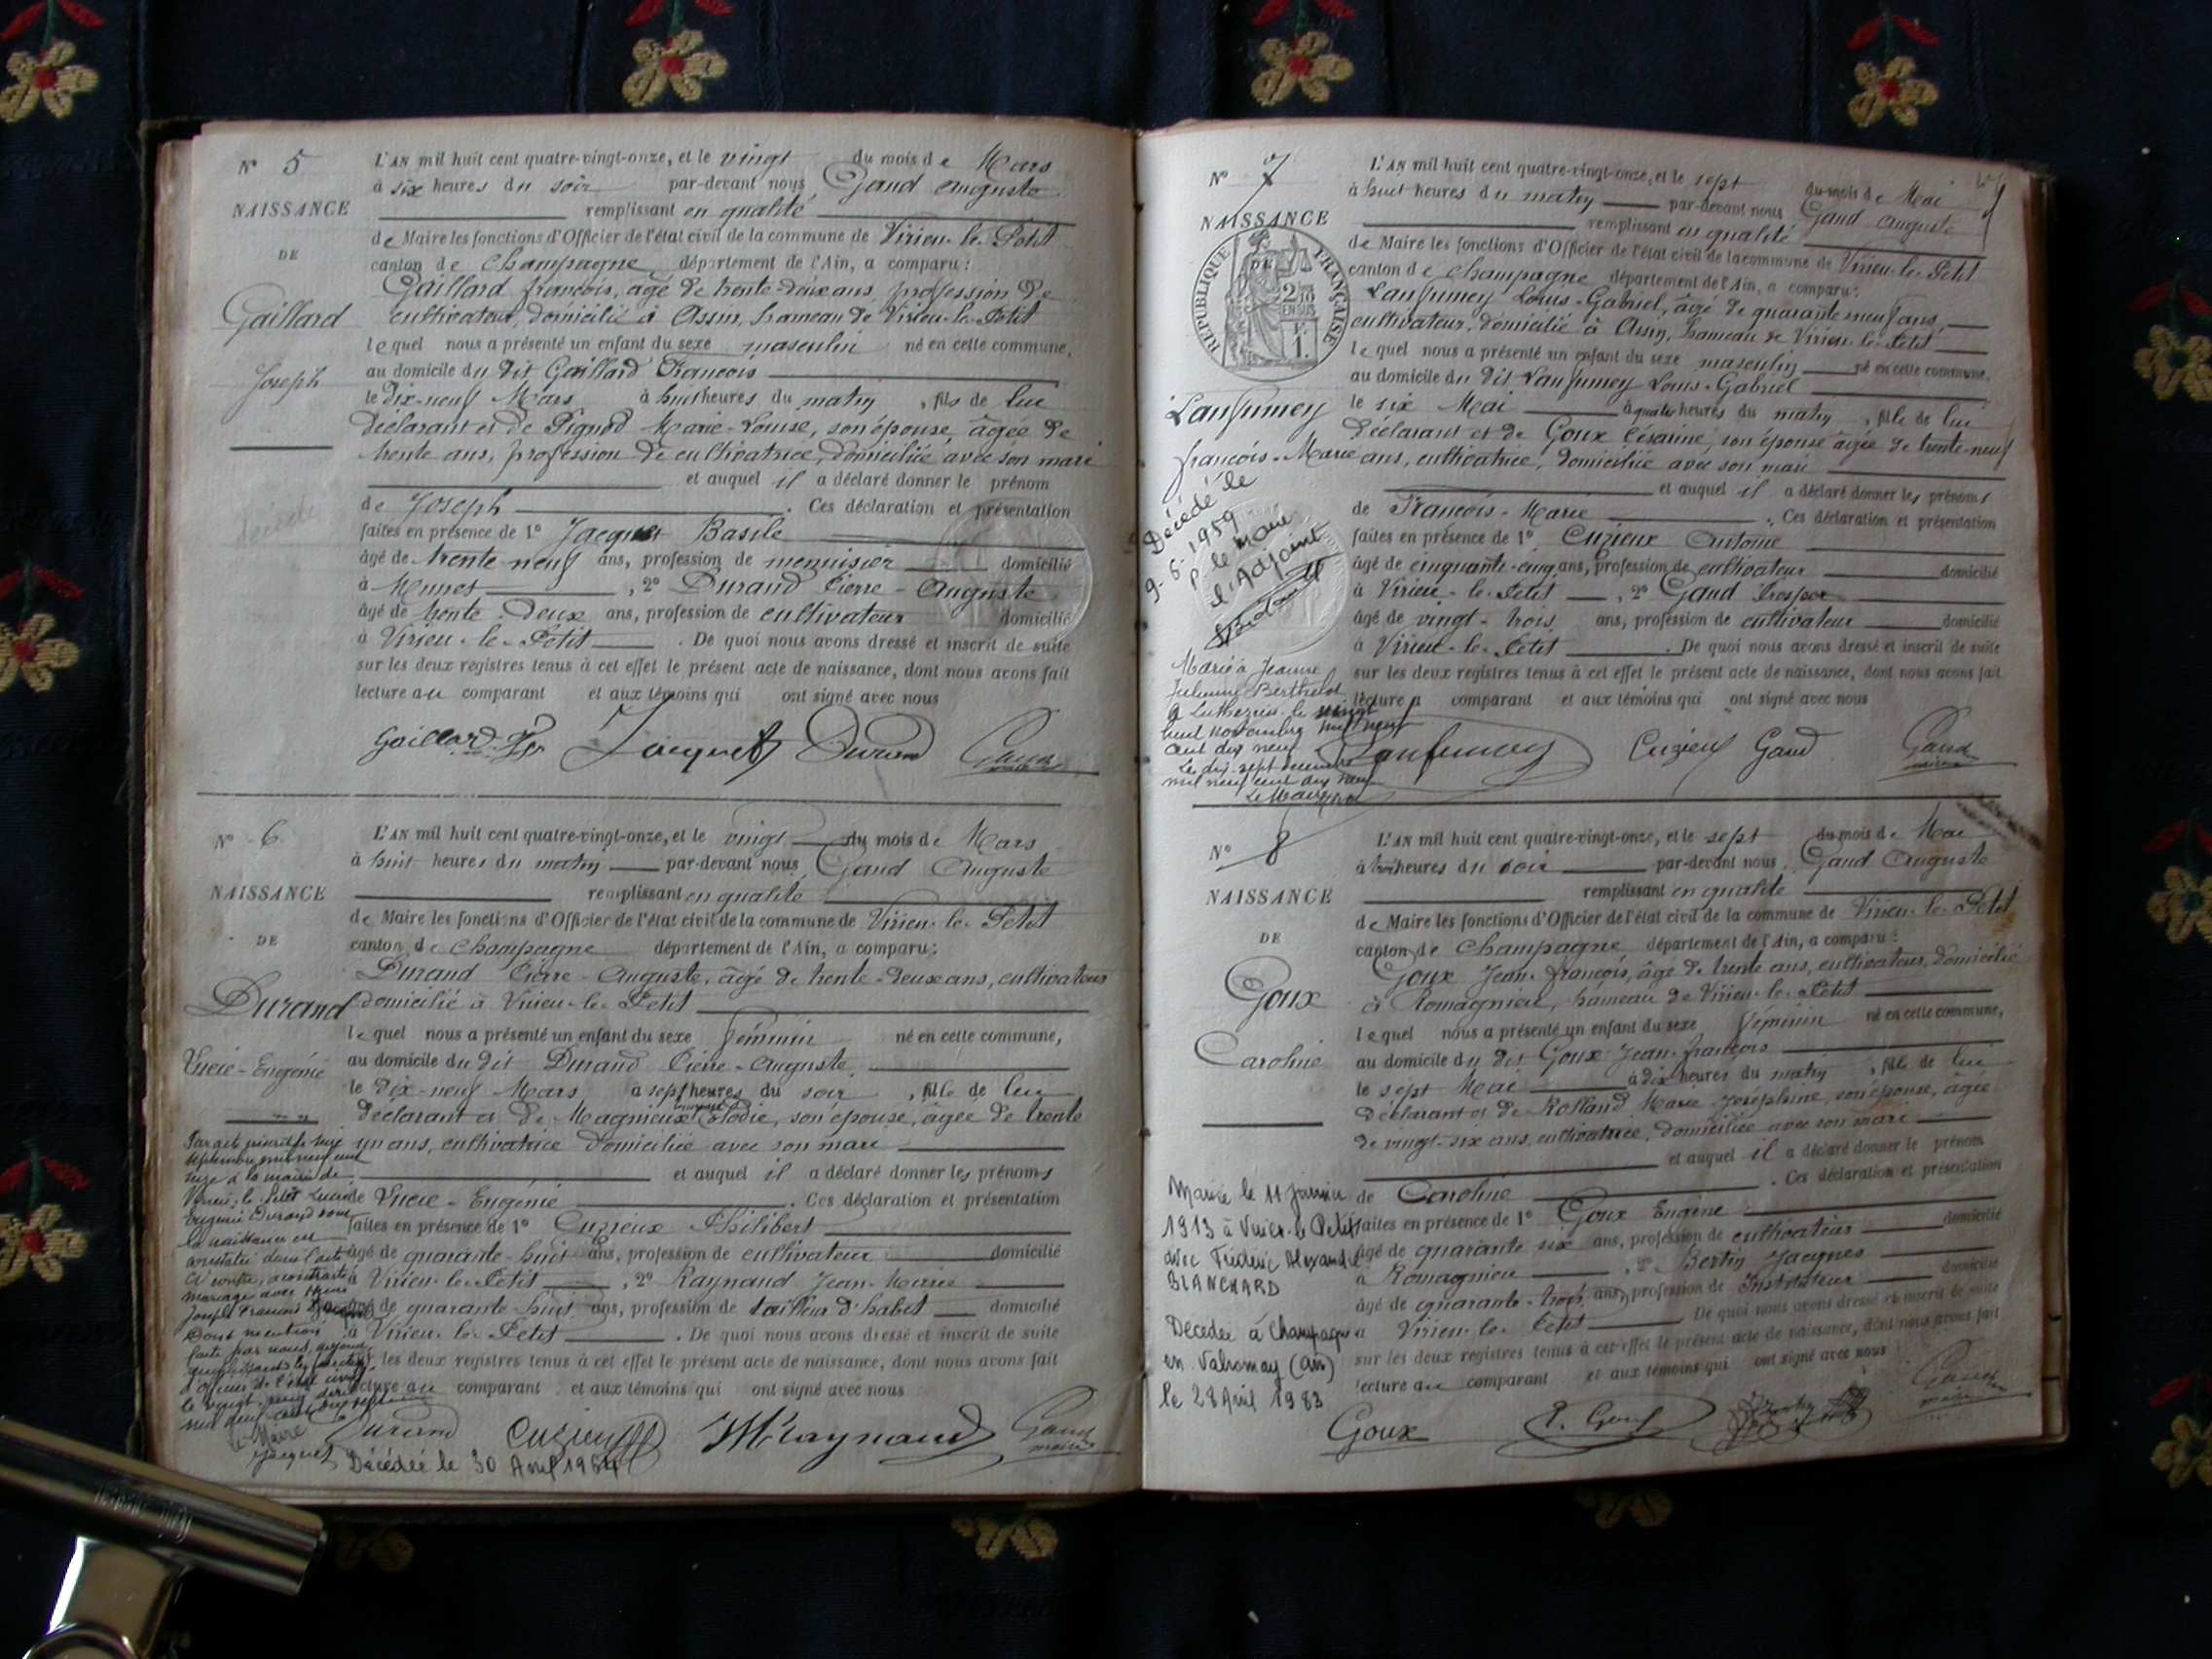 N° 5
NAISSANCE
DE
Gaillard
Joseph
L'AN mil huit cent quatre-vingt-onze, et le vingt du mois de Mars
à six heures du soir par-devant nous Gaud Auguste
remplissant en qualité
de Maire les fonctions d'Officier de l'état civil de la commune de Virieu-le-Petit
canton de Champagne département de l'Ain, a comparu:
Gaillard françois, âgé de trente-deux ans, profession de
cultivateur, domicilié à Assin, hameau de Virieu-le-Petit
lequel nous a présenté un enfant du sexe masculin né en cette commune,
au domicile du dit Gaillard François
le dix-neuf Mars à huit heures du matin, fils de lui
déclarant et de Pignod Marie-Louise, son épouse, âgée de
trente ans, profession de cultivatrice, domiciliée avec son mari
et auquel il a déclaré donner le prénom
de Joseph. Ces déclaration et présentation
faites en présence de 1° Jacquet Basile
âgé de trente-neuf ans, profession de menuisier domicilié
à Munet, 2° Durand Pierre-Auguste
âgé de trente-deux ans, profession de cultivateur domicilié
à Virieu-le-Petit. De quoi nous avons dressé et inscrit de suite
sur les deux registres tenus à cet effet le présent acte de naissance, dont nous avons fait
lecture au comparant et aux témoins qui ont signé avec nous
Gaillard Jacquet Durand Gaud
N° 6
NAISSANCE
DE
Durand
Lucie-Eugénie
L'AN mil huit cent quatre-vingt-onze, et le vingt du mois de Mars
à huit heures du matin par-devant nous Gaud Auguste
remplissant en qualité
de Maire les fonctions d'Officier de l'état civil de la commune de Virieu-le-Petit
canton de Champagne département de l'Ain, a comparu:
Durand Pierre-Auguste, âgé de trente-deux ans, cultivateur
domicilié à Virieu-le-Petit
lequel nous a présenté un enfant du sexe féminin né en cette commune,
au domicile du dit Durand Pierre-Auguste
le dix-neuf Mars à sept heures du soir, fille de lui
déclarant et de Magnieux Elodie, son épouse, âgée de trente
un ans, cultivatrice domiciliée avec son mari
et auquel il a déclaré donner les prénoms
de Lucie-Eugénie. Ces déclaration et présentation
faites en présence de 1° Cuzieux Philibert
âgé de quarante-huit ans, profession de cultivateur domicilié
à Virieu-le-Petit, 2° Raynaud Jean-Marie
âgé de quarante-huit ans, profession de tailleur d'habet domicilié
à Virieu-le-Petit. De quoi nous avons dressé et inscrit de suite
sur les deux registres tenus à cet effet le présent acte de naissance, dont nous avons fait
lecture au comparant et aux témoins qui ont signé avec nous
septembre mil neuf cent
onze à la mairie de
Virieu-le-Petit Lucie
Eugénie Durand dont
la naissance est
constatée dans l'acte
ci contre, a contracté
mariage avec
Joseph François
Dont mention
faite par nous, adjoint
remplissant les fonctions
d'officier de l'état civil
Le Maire
Jacquet
Durand Cuzieux Raynaud Gaud
maire
Décédée le 30 Avril 1964
N° 7
NAISSANCE
DE
RÉPUBLIQUE FRANÇAISE
2/10
EN SUS
1 F.
Lanfumey
françois-Marie
Décédé le
9.6.1959
P. le Maire
l'Adjoint
Marié à Jeanne
Julienne Berthelot
à Luthézieu le vingt
huit novembre mil neuf
cent dix neuf
Le dix-sept décembre
mil neuf cent dix neuf
Le Maire
L'AN mil huit cent quatre-vingt-onze, et le sept du mois de Mai
à huit heures du matin par-devant nous Gaud Auguste
remplissant en qualité
de Maire les fonctions d'Officier de l'état civil de la commune de Virieu-le-Petit
canton de Champagne département de l'Ain, a comparu:
Lanfumey Louis-Gabriel, âgé de quarante neuf ans,
cultivateur, domicilié à Assin, hameau de Virieu-le-Petit
lequel nous a présenté un enfant du sexe masculin né en cette commune,
au domicile du dit Lanfumey Louis-Gabriel
le six Mai à quatre heures du matin, fils de lui
déclarant et de Goux Césarine, son épouse âgée de trente-neuf
ans, cultivatrice, domiciliée avec son mari
et auquel il a déclaré donner les prénoms
de François-Marie. Ces déclaration et présentation
faites en présence de 1° Cuzieux Antoine
âgé de cinquante-cinq ans, profession de cultivateur domicilié
à Virieu-le-Petit, 2° Gaud Prosper
âgé de vingt-trois ans, profession de cultivateur domicilié
à Virieu-le-Petit. De quoi nous avons dressé et inscrit de suite
sur les deux registres tenus à cet effet le présent acte de naissance, dont nous avons fait
lecture au comparant et aux témoins qui ont signé avec nous
Lanfumey Cuzieux Gaud Gaud
maire
N° 8
NAISSANCE
DE
Goux
Caroline
L'AN mil huit cent quatre-vingt-onze, et le sept du mois de Mai
à trois heures du soir par-devant nous Gaud Auguste
remplissant en qualité
de Maire les fonctions d'Officier de l'état civil de la commune de Virieu-le-Petit
canton de Champagne département de l'Ain, a comparu:
Goux Jean-françois, âgé de trente ans, cultivateur, domicilié
à Romagnieu, hameau de Virieu-le-Petit
lequel nous a présenté un enfant du sexe féminin né en cette commune,
au domicile du dit Goux Jean-françois
le sept Mai à dix heures du matin, fille de lui
déclarant et de Rolland Marie-Joséphine, son épouse, âgée
de vingt-six ans, cultivatrice, domiciliée avec son mari
et auquel il a déclaré donner le prénom
de Caroline. Ces déclaration et présentation
faites en présence de 1° Goux Eugène
âgé de quarante six ans, profession de cultivateur domicilié
à Romagnieu, 2° Bertin Jacques
âgé de quarante-trois ans, profession de Instituteur domicilié
à Virieu-le-Petit. De quoi nous avons dressé et inscrit de suite
sur les deux registres tenus à cet effet le présent acte de naissance, dont nous avons fait
lecture au comparant et aux témoins qui ont signé avec nous
Mariée le 11 janvier
1913 à Virieu-le-Petit
avec Frédéric Alexandre
BLANCHARD
Décédée à Champagne
en Valromey (Ain)
le 28 Avril 1983
Goux Gaud
maire